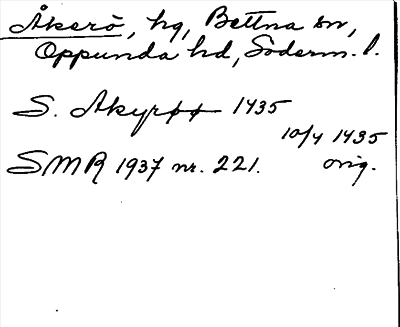 Åkerö, hg, Bettna sn,
Oppunda hd, Söderm. l.
S. Akyrøø 1435
10/4 1435
SMR 1937 nr. 221. orig.